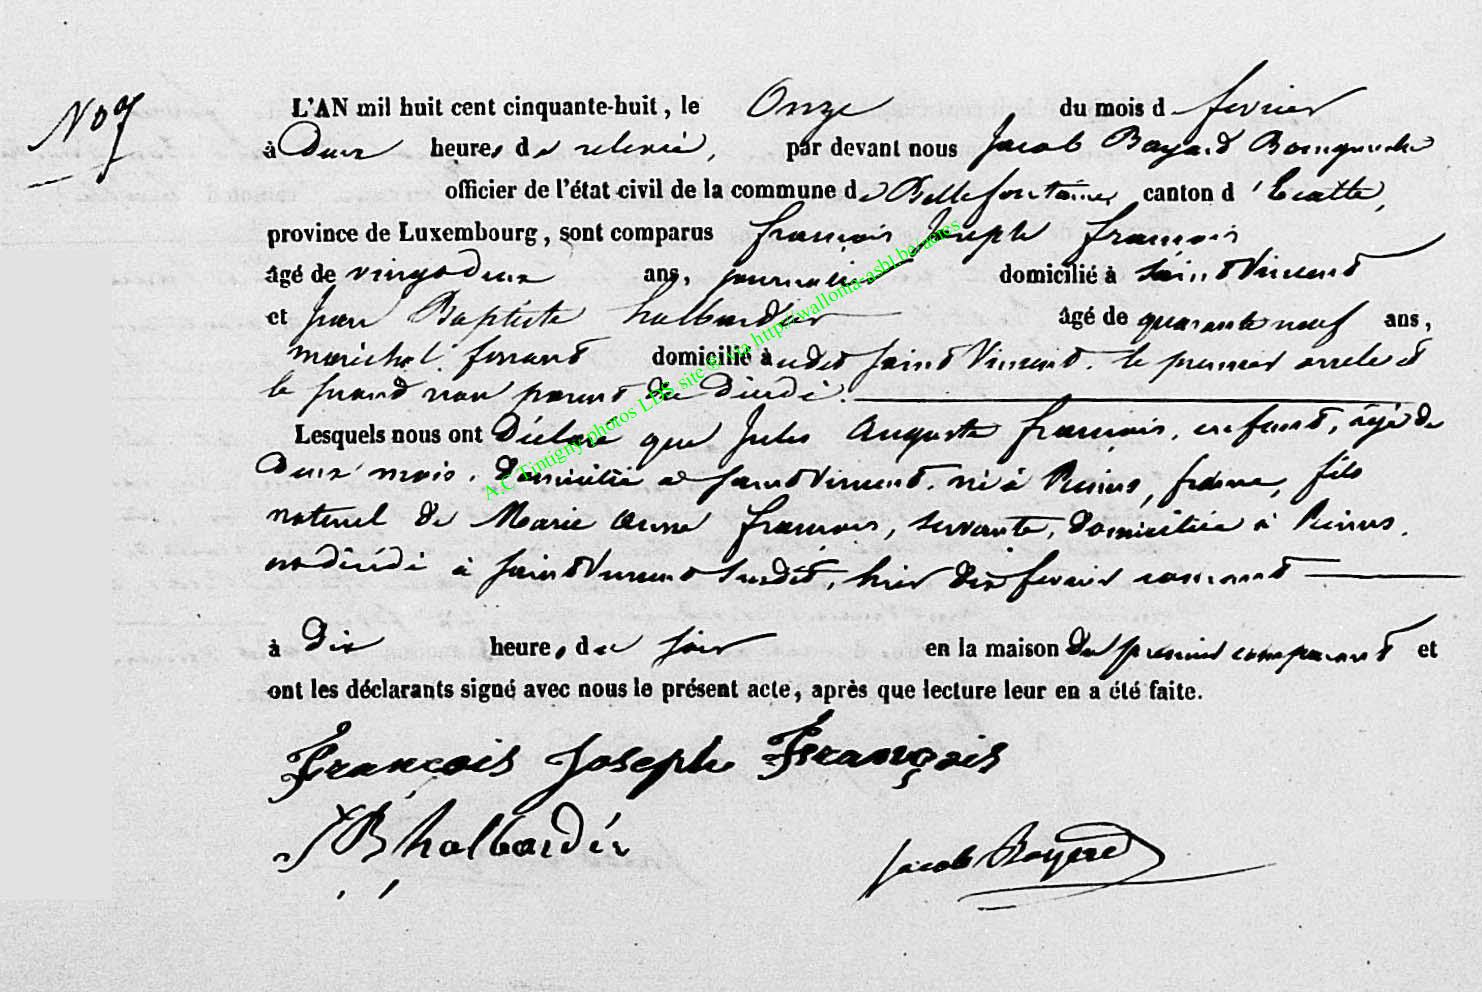 No 7
L'AN mil huit cent cinquante-huit, le Onze du mois de fevrier
à Deux heures de relevée, par devant nous Jacob Bayard Bourgmestre
officier de l'état civil de la commune de Bellefontaine canton d'Etalle,
province de Luxembourg, sont comparus françois Joseph françois
âgé de vingt deux ans, journalier domicilié à Saint Vincent
et Jean Baptiste halbardier âgé de quarante neuf ans,
maréchal ferrant domicilié à udit Saint Vincent. le premier oncle et
le second non parent du Décédé.
Lesquels nous ont Déclaré que Jules Auguste françois, enfant, âgé de
Deux mois, Domicilié à Saint Vincent. né à Reims, france, fils
naturel de Marie Anne françois, servante, Domiciliée à Reims.
est décédé à Saint Vincent susdit, hier dix fevrier courant
à Dix heures du soir en la maison du premier comparant et
ont les déclarants signé avec nous le présent acte, après que lecture leur en a été faite.
François Joseph François
JB halbardier
Jacob Bayard
A.C Tintigny photos LDS site © via http://wallonia-asbl.be/actes